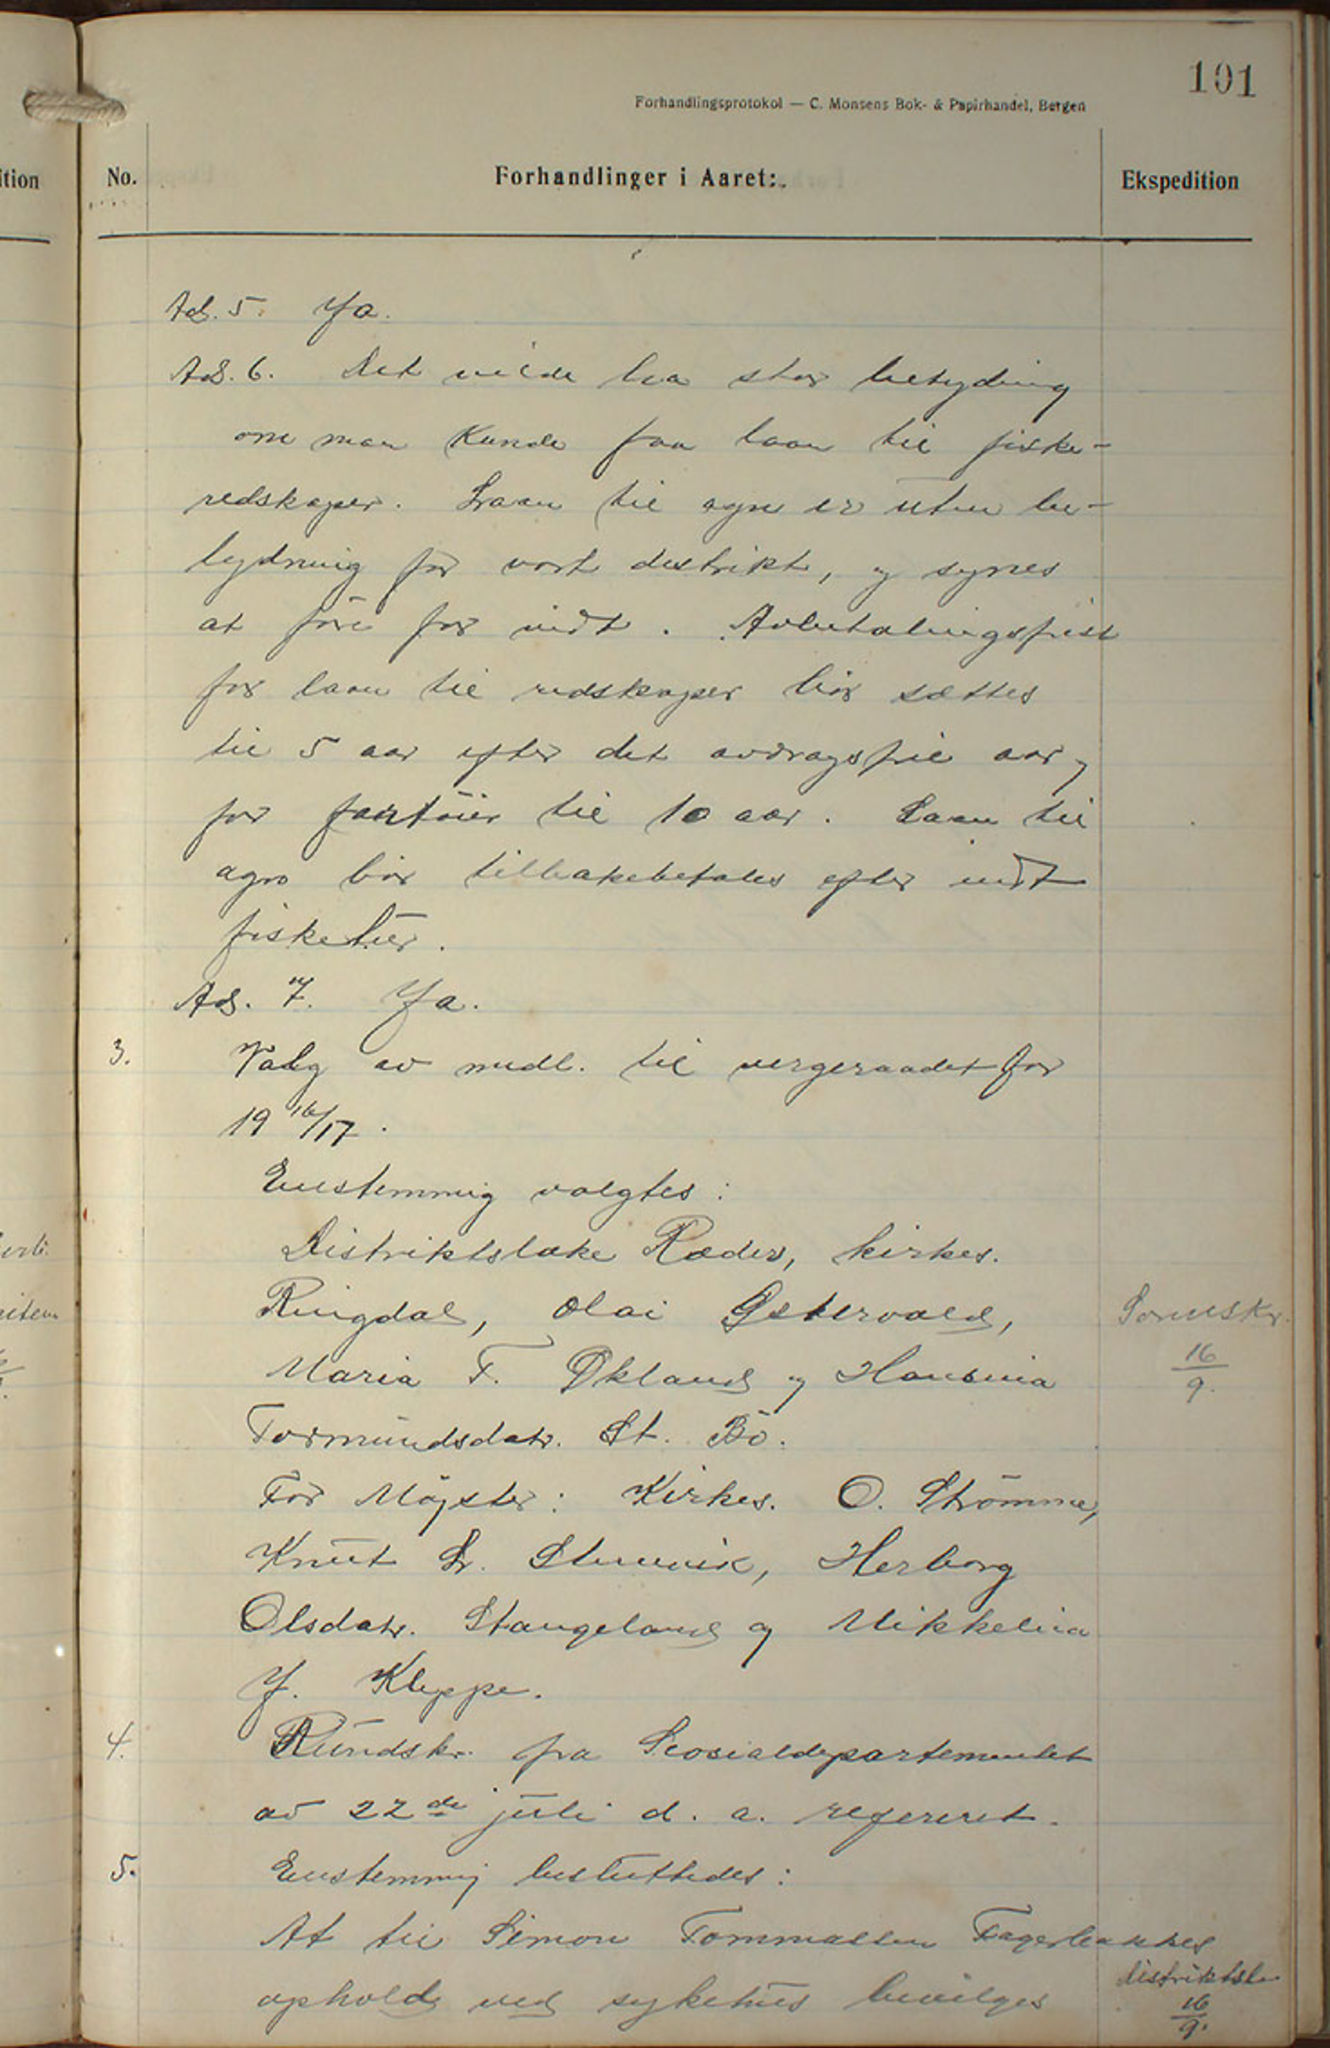 101
Forhandlingsprotokol — C. Monsens Bok- & Papirhandel, Bergen
ition
No.
Forhandlinger i Aaret:
Ekspedition
Ad. 5. Ja.
Ad. 6. Det vilde ha stor betydning
om man kunde faa laan til fiske-
redskaper. Laan til agn er uten be-
tydning for vort distrikt, og synes
at føre for vidt. Avbetalingsfrist
for laan til redskaper bör sættes
til 5 aar efter det avdragsfrie aar og
for fartöier til 10 aar. Laan til
agn bör tilbakebetales efter endt
fisketur.
Ad. 7. Ja.
3. Valg av medl. til vergeraadet for
19 16/17.
Enstemmig valgtes:
Distriktslæke Ræder, kirkes.
Ringdal, Olai Østervold,
Maria T. Økland og Hansina
Tormundsdatr. St. Bö.
For Møgster: Kirkes. O. Strömme,
Knut L. Stunvik, Herborg
Olsdatr. Stangeland og Mikkelina
J. Kleppe.
16
9.
4. Rundskr. fra Scosialdepartementet
av 22de juli d. a. refereret.
5. Enstemmig besluttedes:
At til Simon Tommassen Fagerbakkes
ophold ved sykehus bevilges
distriktsl.
16
9.